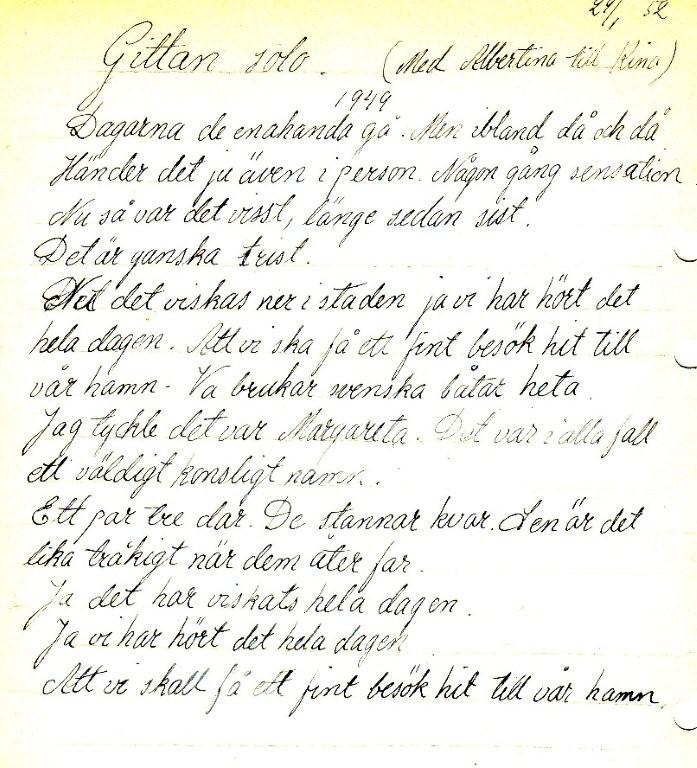 29/1 52
Gittan solo. (Med Albertina till Kina)
1949
Dagarna de enakanda gå. Men ibland då och då
Händer det ju även i person. Någon gång sensation
Nu så var det visst, länge sedan sist.
Det är ganska trist.
det viskas ner i staden ja vi har hört det
hela dagen. Att vi ska få ett fint besök hit till
vår hamn. Va brukar svenska båtar heta.
Jag tyckte det var Margareta. Det var i alla fall
ett väldigt konsligt namn.
Ett par tre dar. De stannar kvar. Sen är det
lika tråkigt när dem åter far.
Ja det har viskats hela dagen.
Ja vi har hört det hela dagen
Att vi skall få ett fint besök hit till vår hamn.